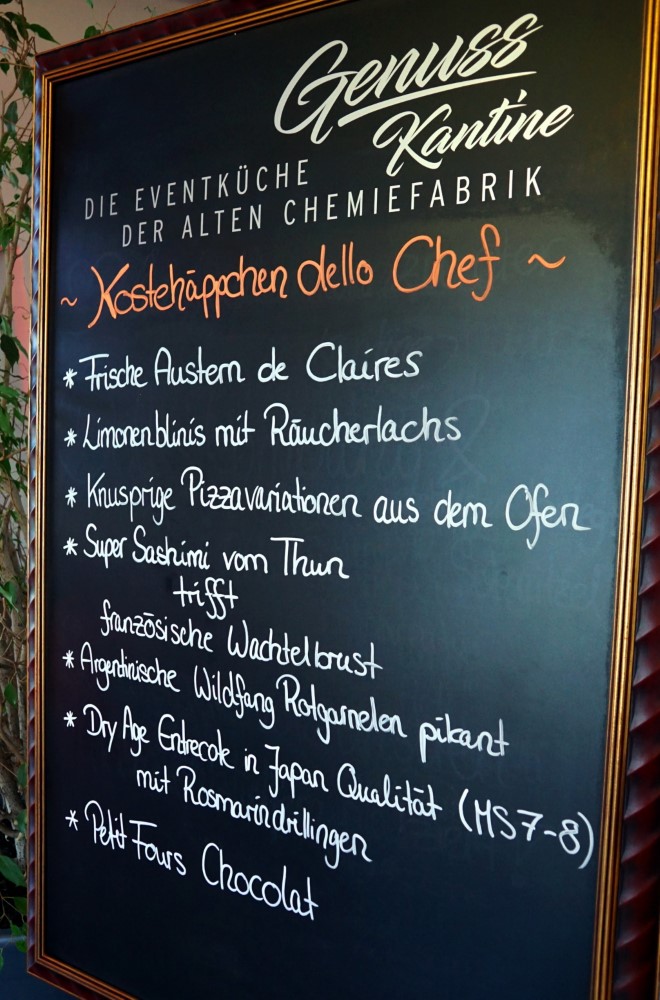 Genuss
Kantine
DIE EVENTKÜCHE
DER ALTEN CHEMIEFABRIK
~ Kostehäppchen dello Chef ~
* Frische Austern de Claires
* Limonenblinis mit Räucherlachs
* Knusprige Pizzavariationen aus dem Ofen
* Super Sashimi vom Thun
trifft
französische Wachtelbrust
* Argentinische Wildfang Rotgarnelen pikant
* Dry Age Entrecote in Japan Qualität (MS7-8)
mit Rosmarindrillingen
* Petit Fours Chocolat